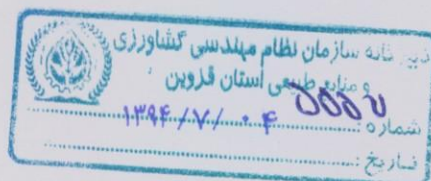 دبیرخانه سازمان نظام مهندسی کشاورزی
و منابع طبیعی استان قزوین
شماره:
۱۳۹۴/۷/۰۴
تاریخ: